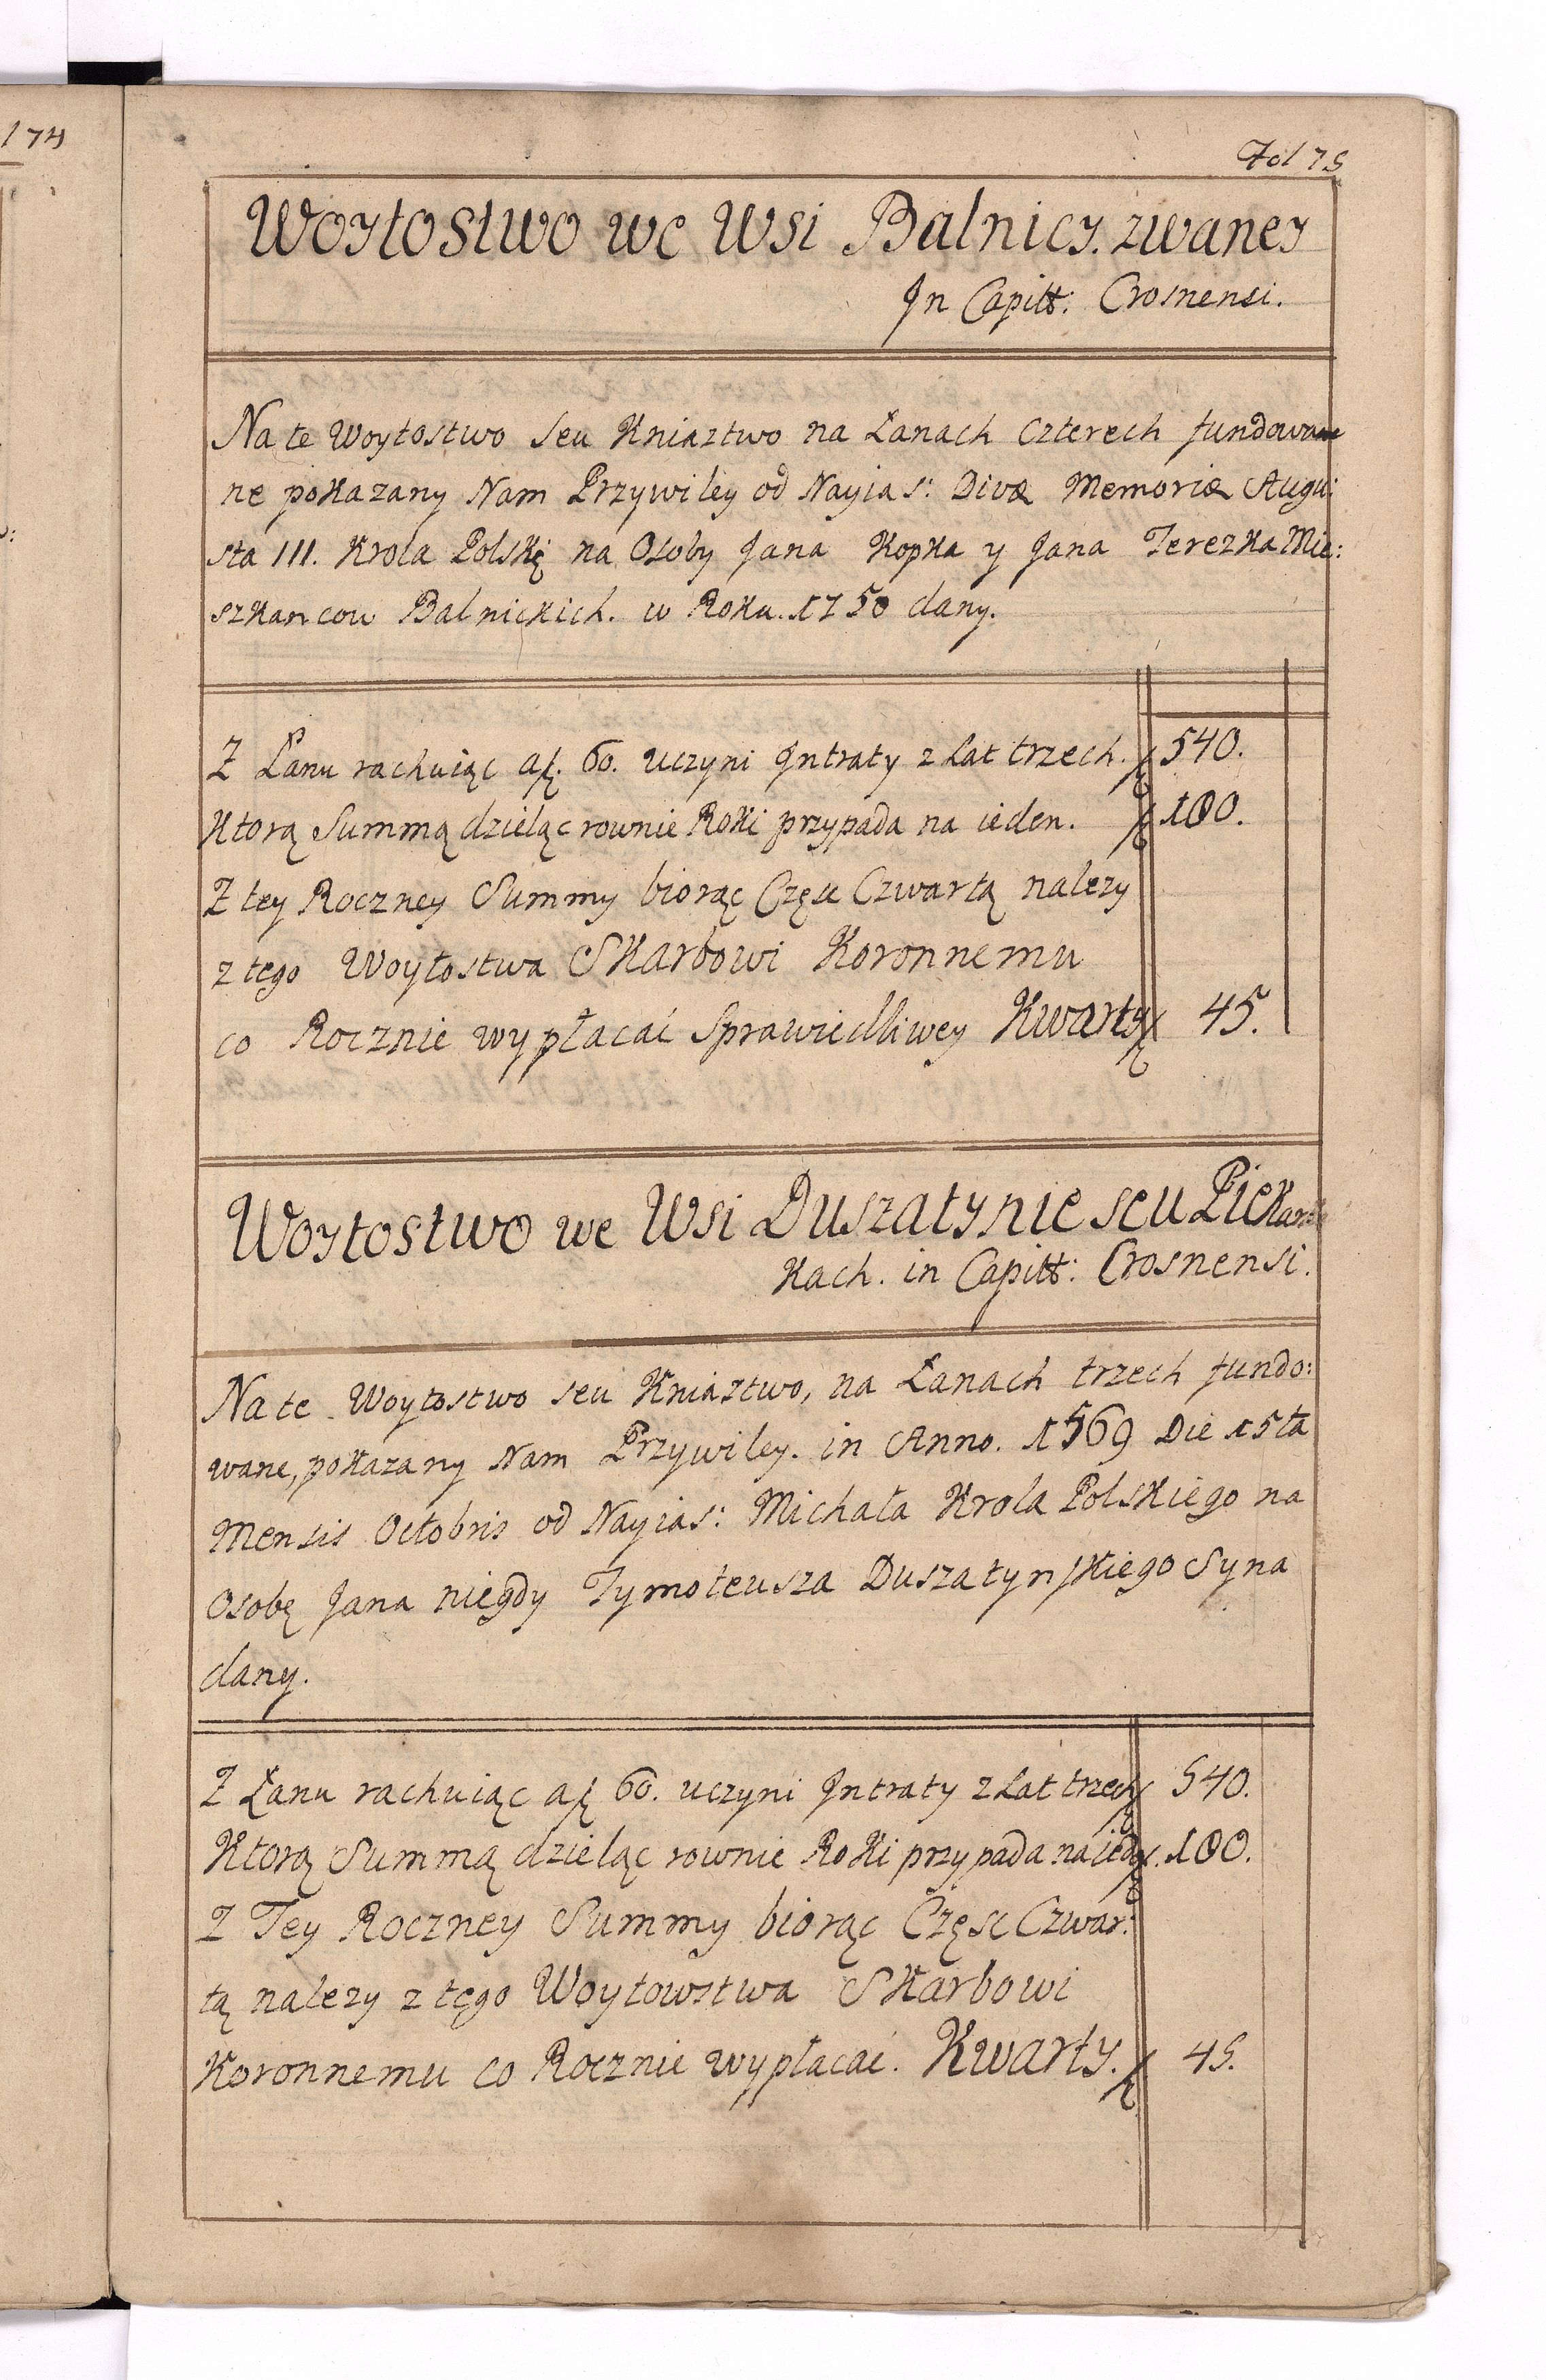 174
Fol 75
Woytostwo we Wsi Balnicy. zwaney
In Capitt: Crosnensi.
Na te Woytostwo seu Kniaztwo na Łanach czterech fundowa
ne pokazany Nam Przywiley od Nayias: Divæ Memoriæ Augu:
sta III. Krola Polskę na Osoby Jana Kopka y Jana Terezka Mie:
szkancow Balnickich. w Roku. 1750 dany.
Z Łanu rachuiąc a f. 60. uczyni Intraty z Lat trzech. f 540.
Ktorą Summą dzieląc rownie Roki przypada na ieden. f 180.
Z tey Roczney Summy biorąc Częsc Czwartą nalezy
z tego Woytostwa Skarbowi Koronnemu
co Rocznie wypłacać Sprawiedliwey Kwarty f 45.
Woytostwo we Wsi Duszatynie seu Piekar
kach. in Capitt: Crosnensi.
Na te Woytostwo seu Kniaztwo, na Łanach trzech fundo:
wane, pokazany Nam Przywiley. in Anno. 1569 Die 15ta
Mensis Octobris od Nayias: Michała Krola Polskiego na
Osobę Jana niegdy Tymoteusza Duszatynskiego Syna
dany.
Z Łanu rachuiąc a f 60. uczyni Intraty z Lat trzech f 540.
Ktorą Summą dzieląc rownie Roki przypada na ied f. 180.
Z Tey Roczney Summy biorąc Częsc Czwar:
tą nalezy z tego Woytowstwa Skarbowi
Koronnemu co Rocznie wypłacać. Kwarty. f 45.